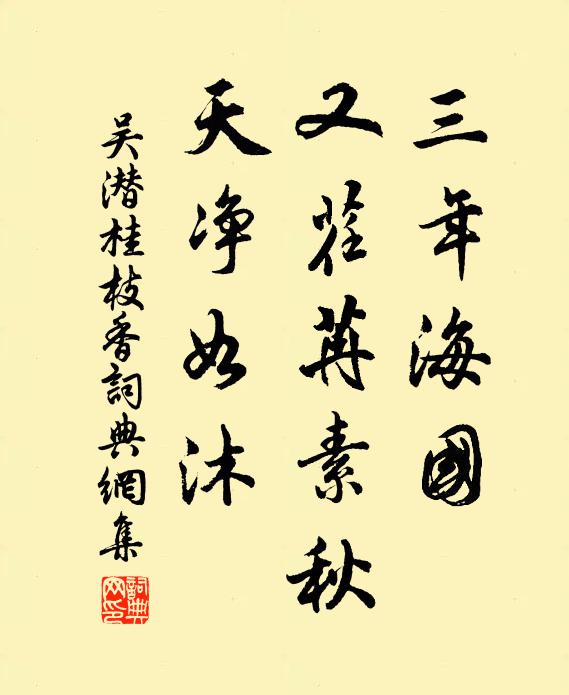 三年海國
又荏苒素秋
天净如沐
吴潜桂枝香詞典網集
詞典网印